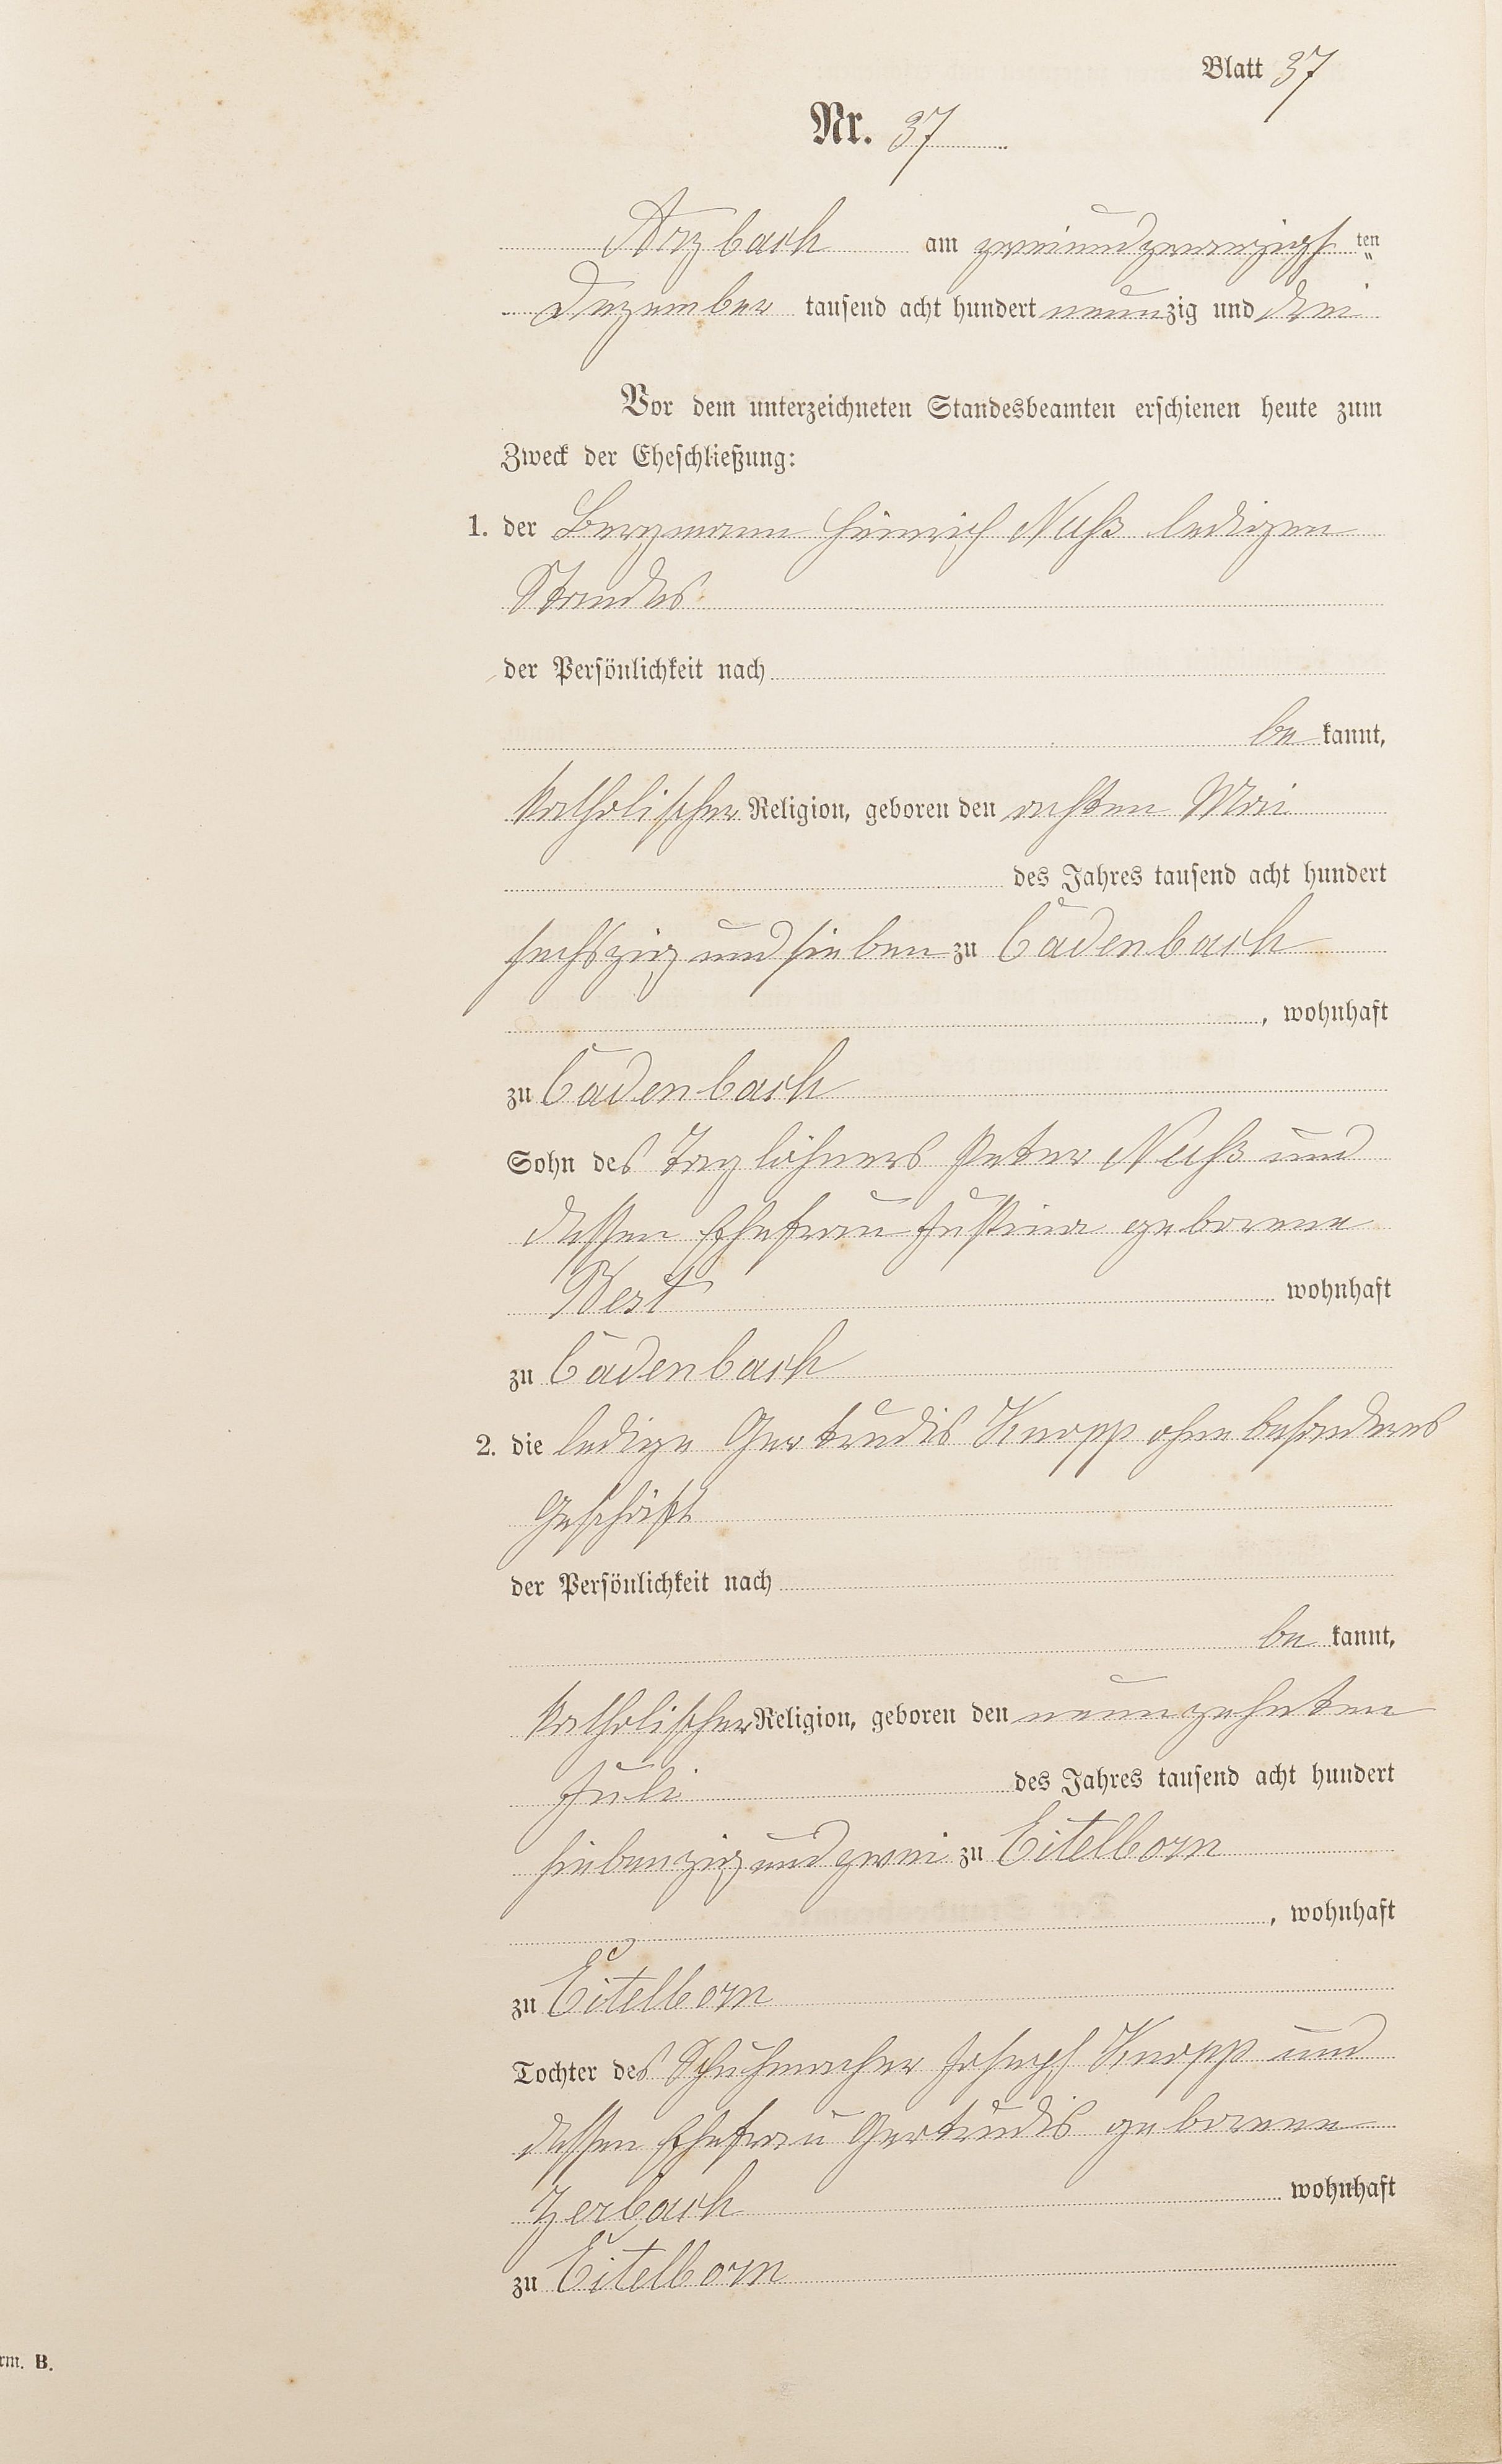 Blatt 37
Nr. 37
Arzbach am zweiundzwanzigsten
Dezember tausend acht hundert neunzig und drei
Vor dem unterzeichneten Standesbeamten erschienen heute zum
Zweck der Eheschließung:
1. der Bergmann Heinrich Nuß ledigen
Standes
der Persönlichkeit nach
be kannt,
katholischer Religion, geboren den achten Mai
des Jahres tausend acht hundert
sechszig und sieben zu Cadenbach
, wohnhaft
zu Cadenbach
Sohn des Taglöhners Peter Nuß und
dessen Ehefrau Justina geborene
Best wohnhaft
zu Cadenbach
2. die ledige Gertrudis Knopp ohne besonderes
Geschäft
der Persönlichkeit nach
be kannt,
katholischer Religion, geboren den neunzehnten
Juli des Jahres tausend acht hundert
siebenzig und zwei zu Eitelborn
, wohnhaft
zu Eitelborn
Tochter des Schuhmacher Joseph Knopp und
dessen Ehefrau Gertrudis geborene
Zerbach wohnhaft
zu Eitelborn
rm. B.